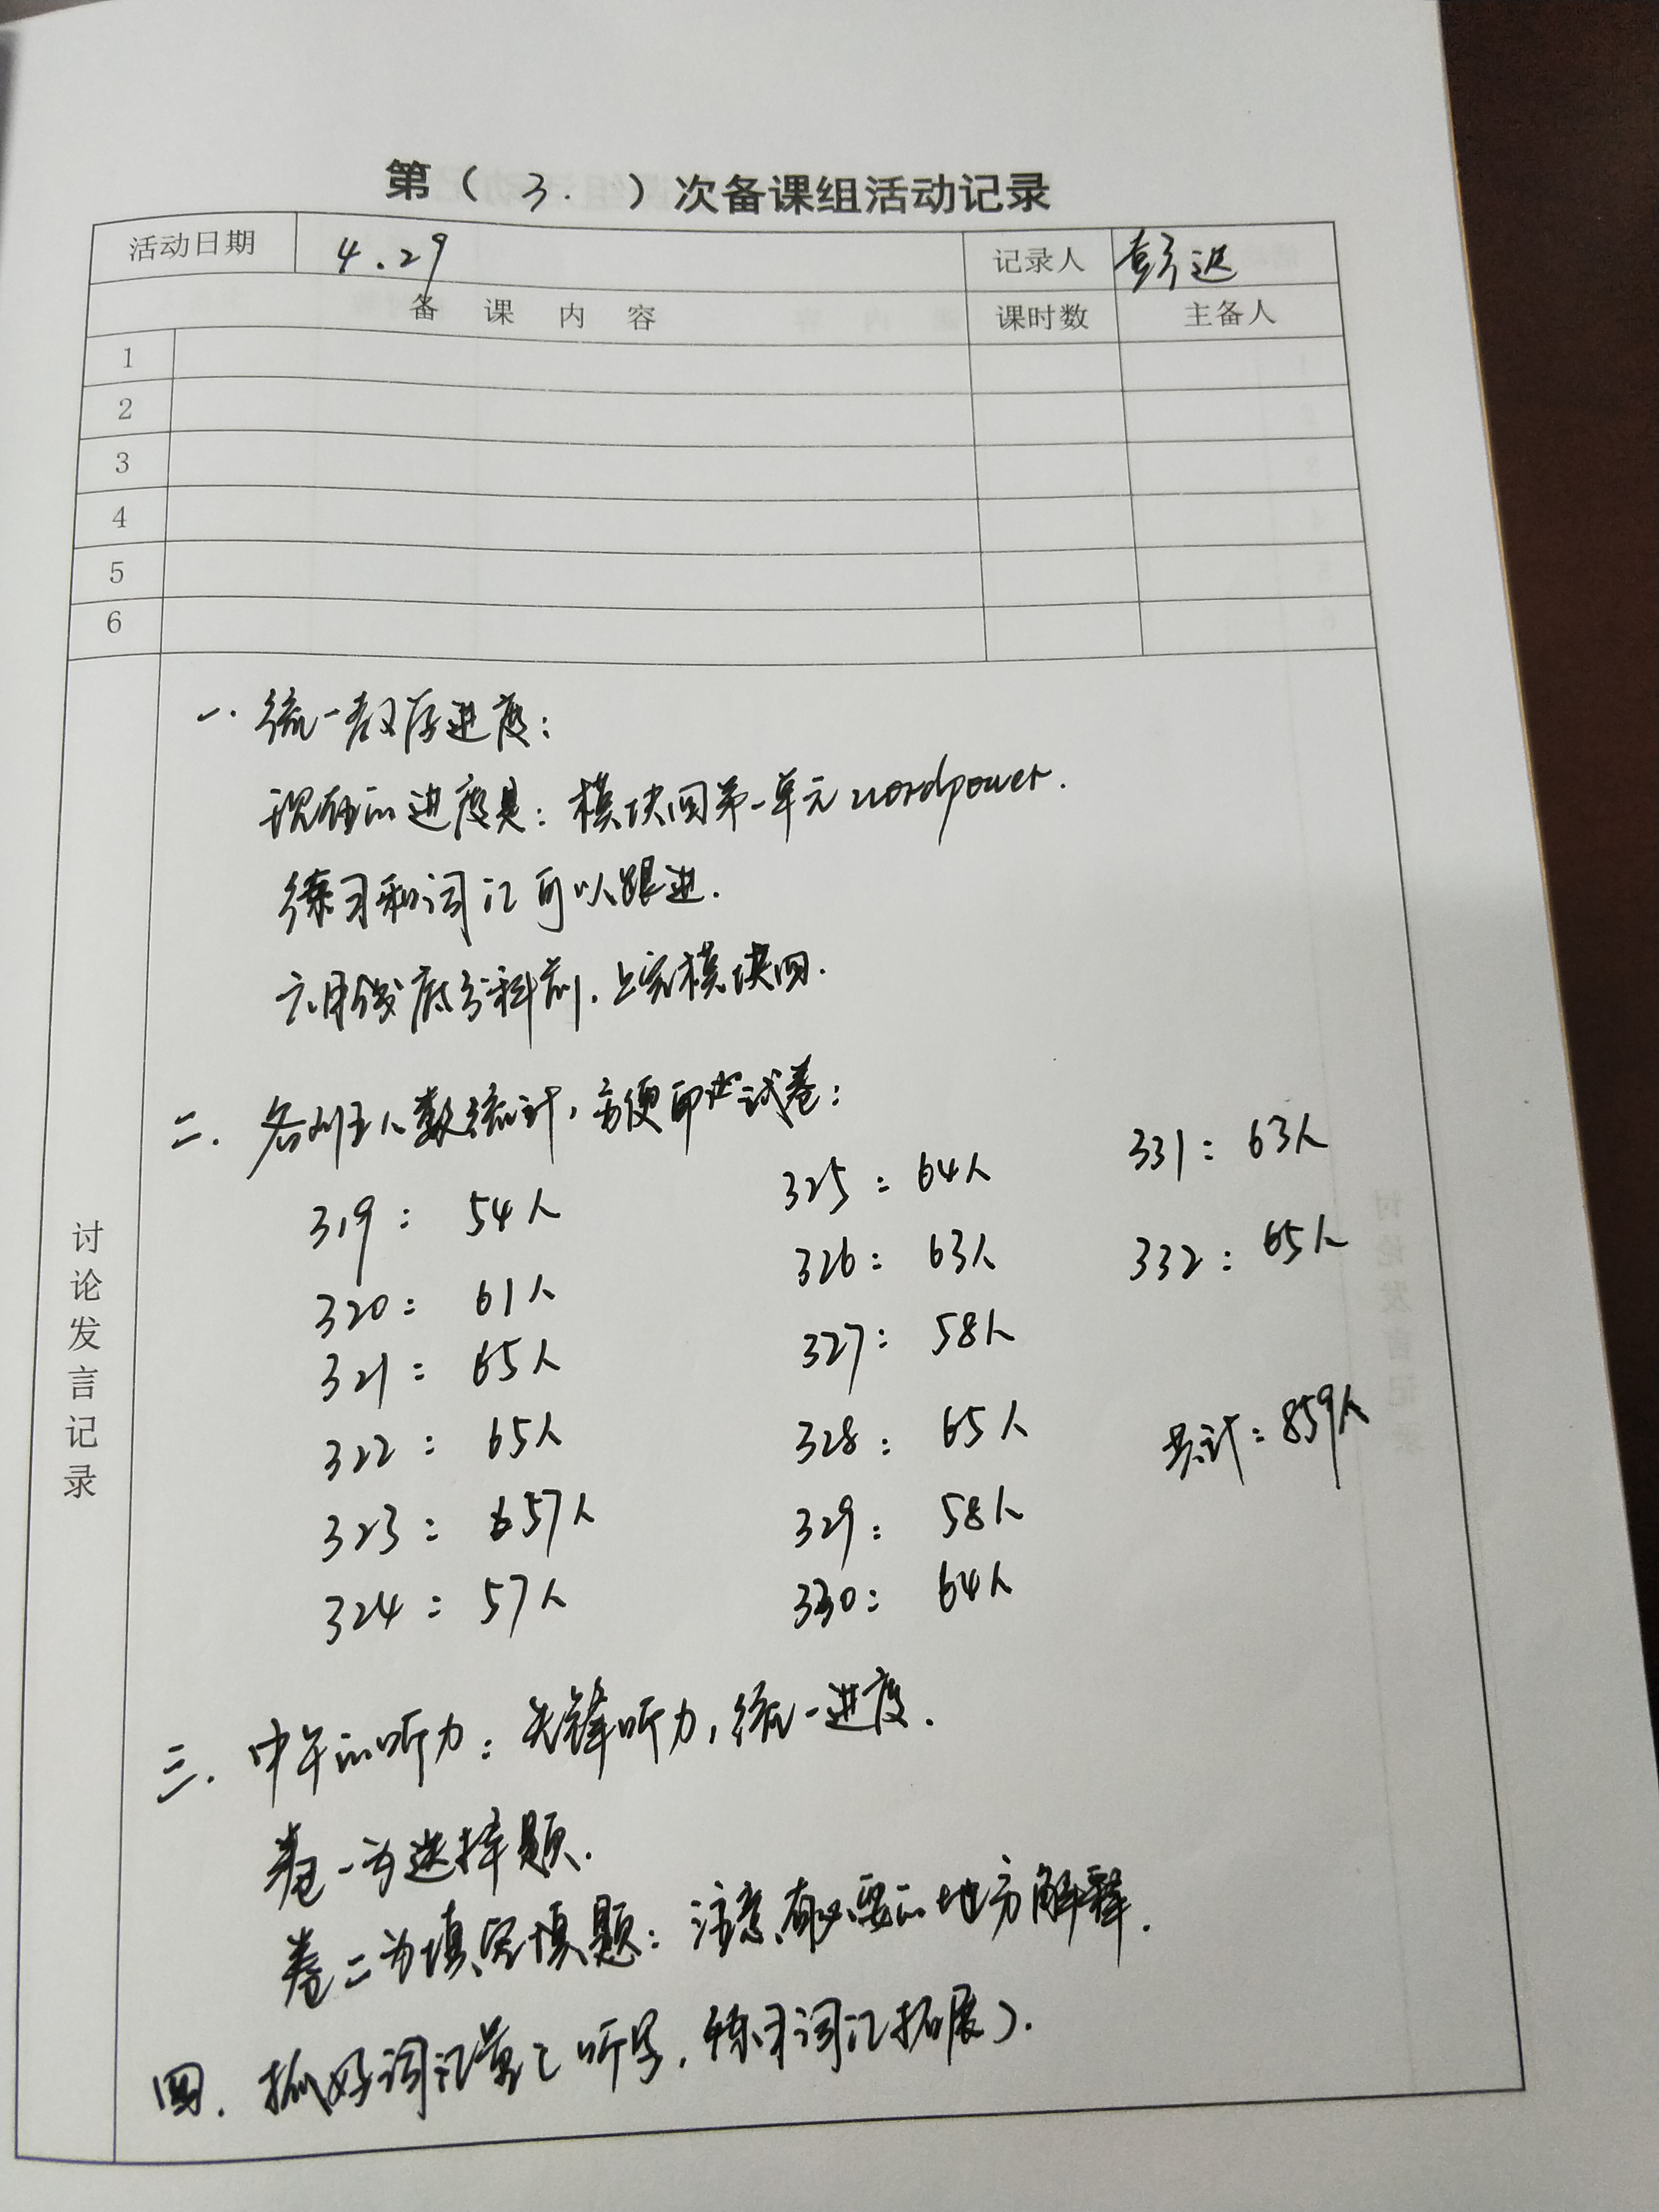 第（ 3. ）次备课组活动记录
活动日期 4.29 记录人 彭迟
备 课 内 容 课时数 主备人
1
2
3
4
5
6
讨论发言记录
一. 统一教学进度:
现在的进度是: 模块四第一单元 wordpower.
练习和词汇可以跟进.
六月份底分科前, 上完模块四.
二. 各班人数统计, 方便印试卷:
319: 54人
320: 61人
321: 65人
322: 65人
323: 57人
324: 57人
325: 64人
326: 63人
327: 58人
328: 65人
329: 58人
330: 64人
331: 63人
332: 65人
共计: 859人
三. 中午的听力: 先锋听力, 统一进度.
卷一为选择题.
卷二为填空填题: 注意有必要的地方解释.
四. 抓好词汇量(听写, 练习词汇拓展).